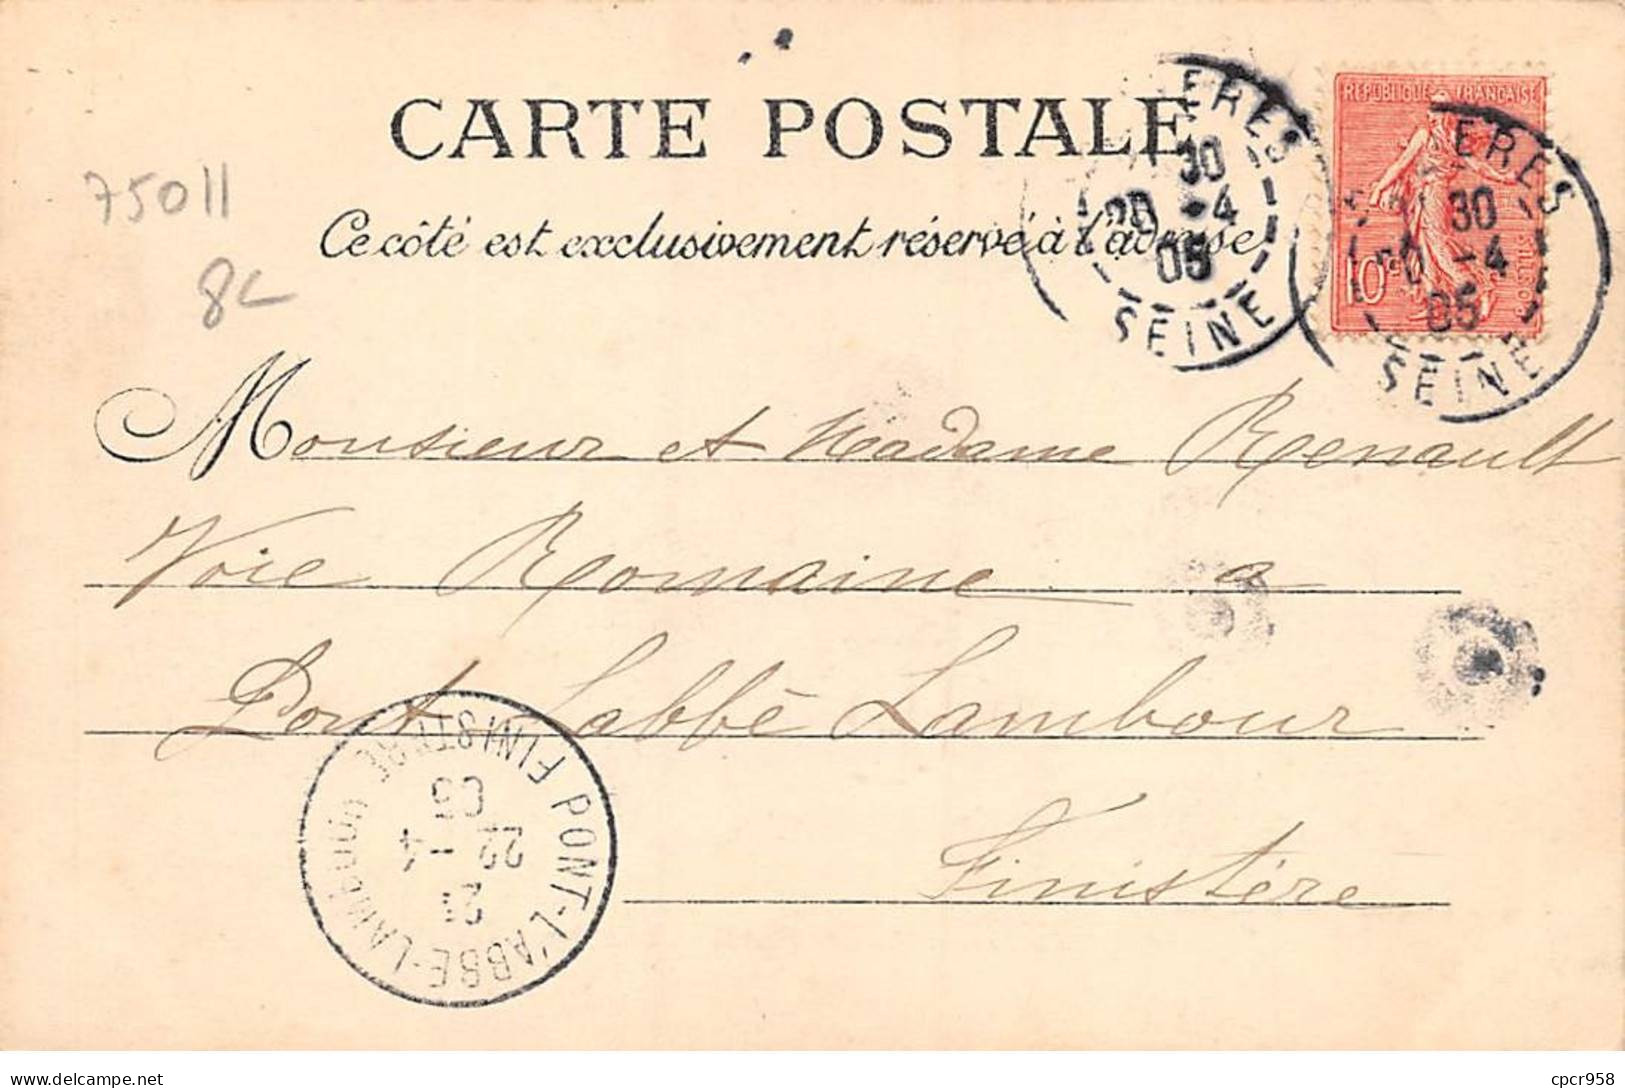 CARTE POSTALE
Ce côté est exclusivement réservé à l'adresse
75011
8L
RÉPUBLIQUE FRANÇAISE
10c
ERES
30
20 -4
05
SEINE
ERES
30
20 -4
05
SEINE
Monsieur et Madame Renault
Voie Romaine a
Pont Labbé Lambour
Finistère
PONT-L'ABBE-LAMBOUR
FINISTERE
21
22 -4
05
delcampe.net
cpcr958